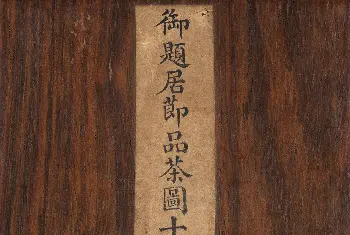 御題居節品茶圖十